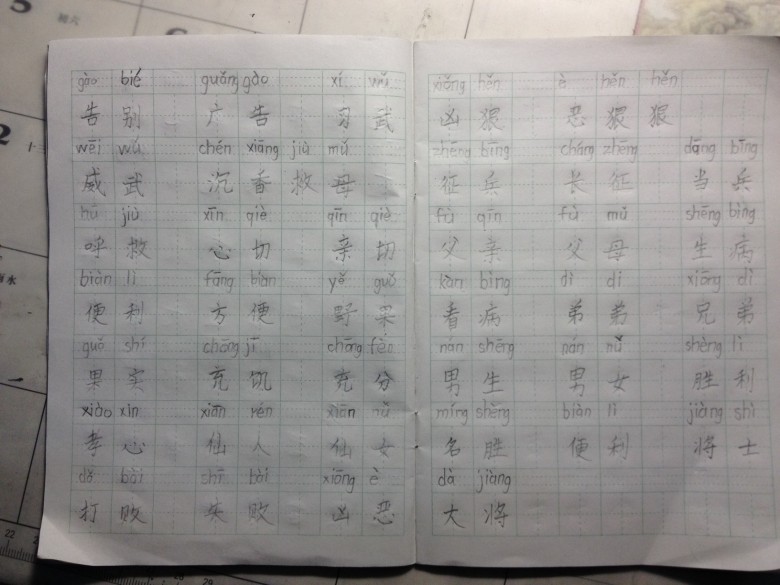 gào bié guǎng gào xí wǔ
告别 广告 习武
wēi wǔ chén xiāng jiù mǔ
威武 沉香救母
hū jiù xīn qiè qīn qiè
呼救 心切 亲切
biàn lì fāng biàn yě guǒ
便利 方便 野果
guǒ shí chōng jī chōng fèn
果实 充饥 充分
xiào xīn xiān rén xiān nǚ
孝心 仙人 仙女
dǎ bài shī bài xiōng è
打败 失败 凶恶
xiōng hěn è hěn hěn
凶狠 恶狠狠
zhēng bīng cháng zhēng dāng bīng
征兵 长征 当兵
fù qīn fù mǔ shēng bìng
父亲 父母 生病
kàn bìng dì di xiōng dì
看病 弟弟 兄弟
nán shēng nán nǚ shèng lì
男生 男女 胜利
míng shèng biàn lì jiàng shì
名胜 便利 将士
dà jiàng
大将